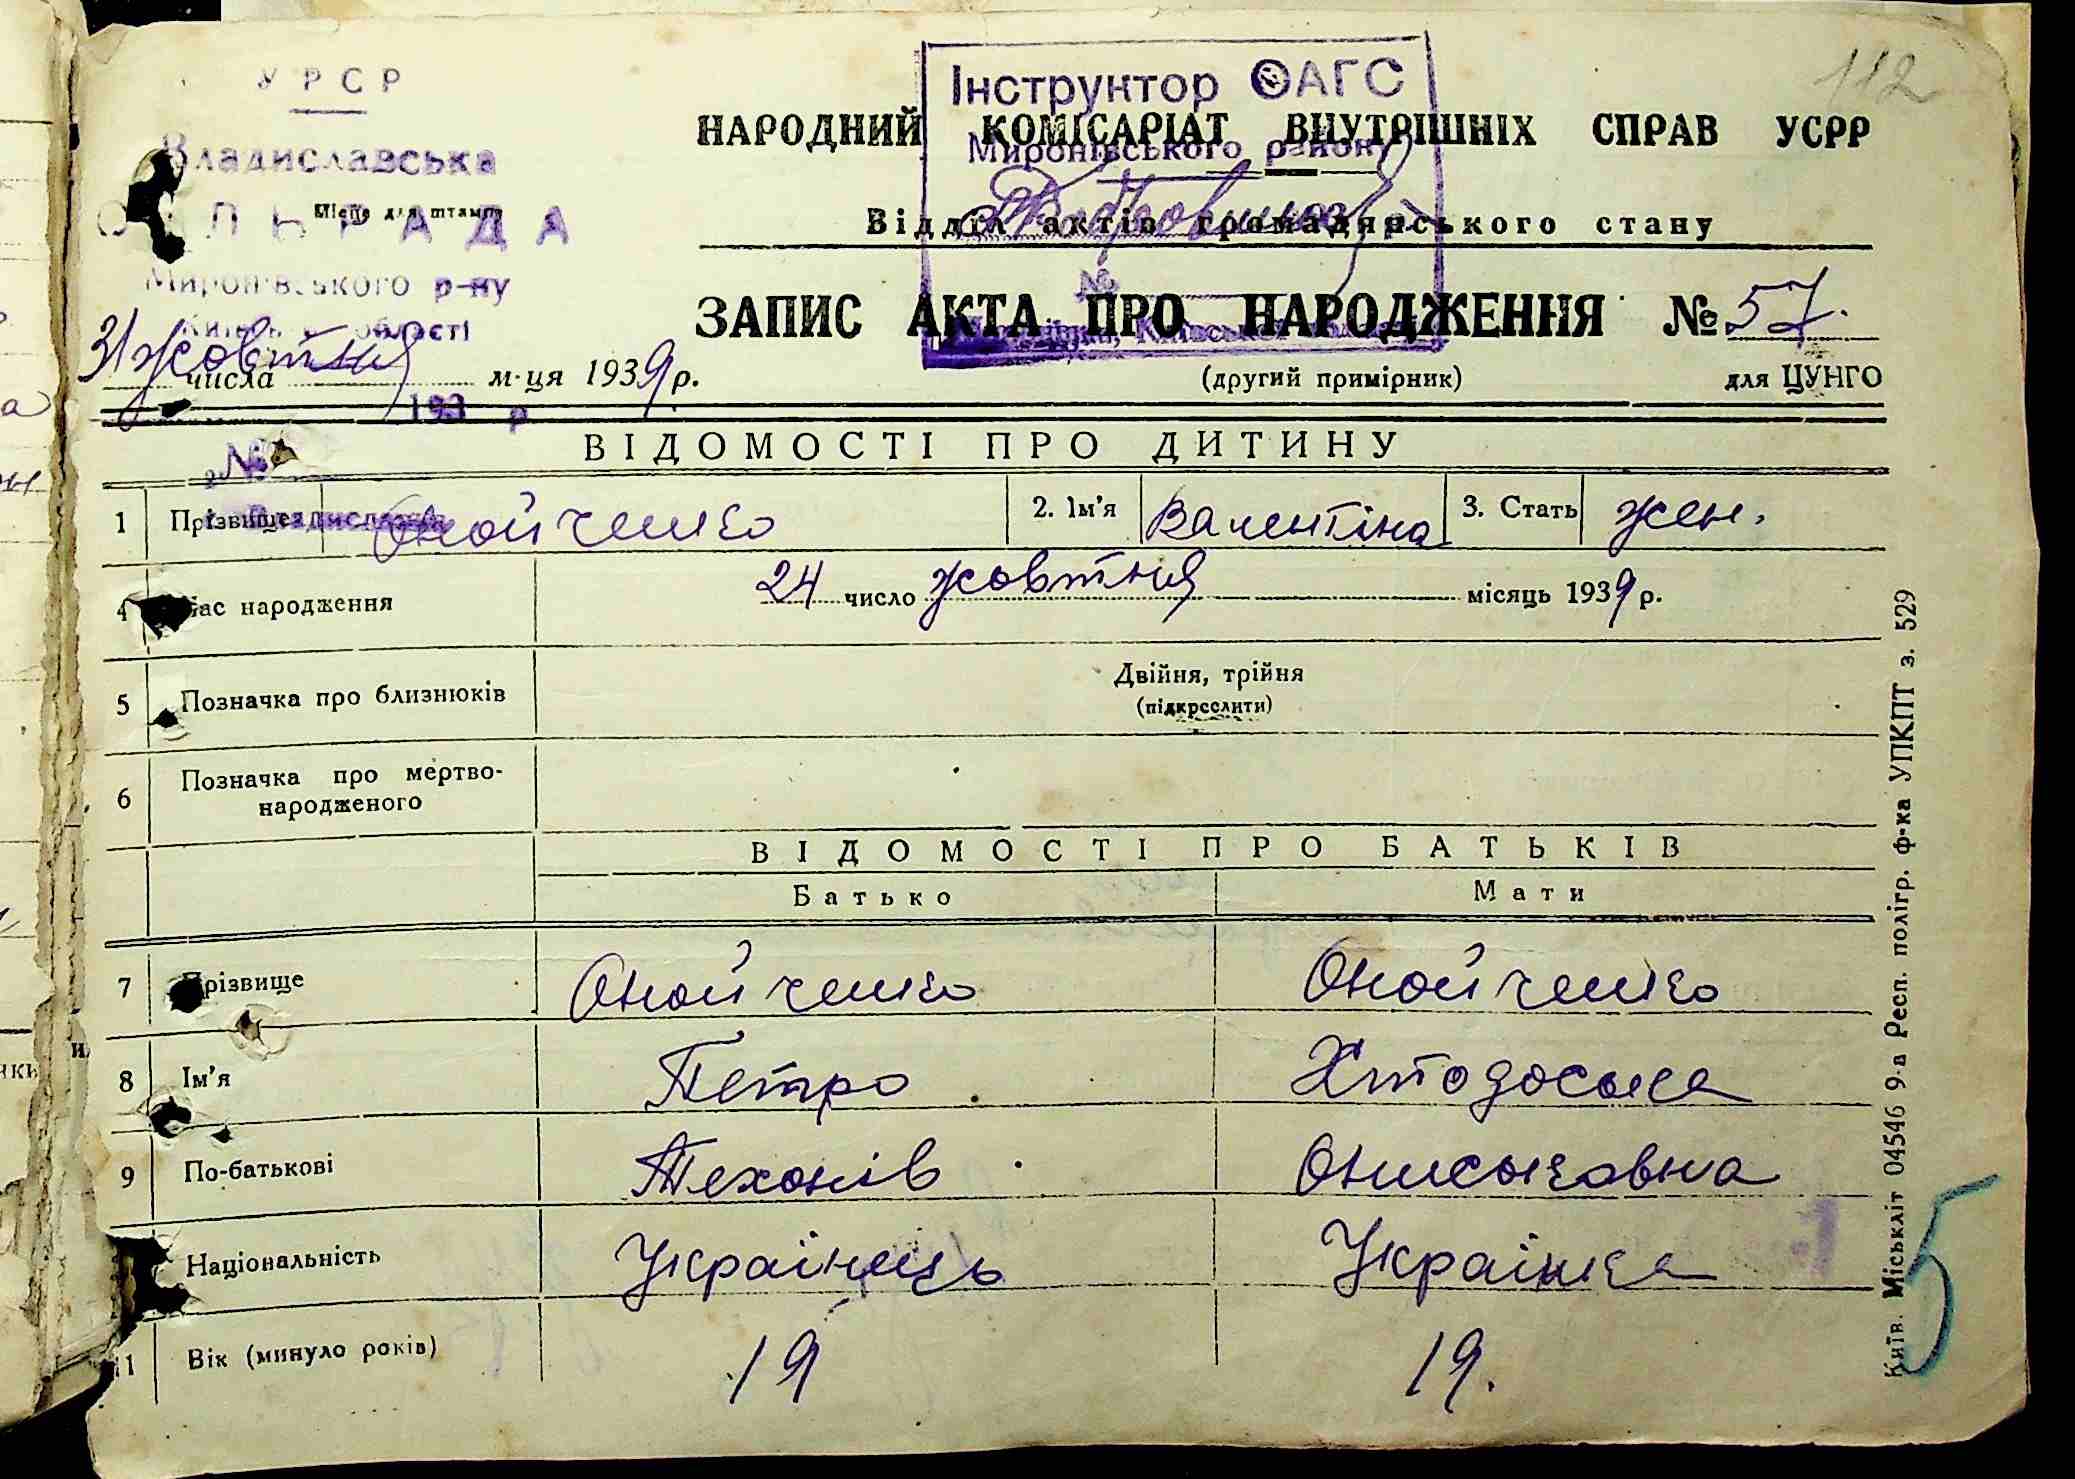 112
УРСР
Владиславська
СІЛЬРАДА
Місце для штампу
Миронівського р-ну
Київської області
193 р.
№
Владиславка
Інструктор ОАГС
Миронівського району
193 р.
№
НАРОДНИЙ КОМІСАРІАТ ВНУТРІШНІХ СПРАВ УСРР
Відділ актів громадянського стану
ЗАПИС АКТА ПРО НАРОДЖЕННЯ № 57.
31 числа жовтня м-ця 1939 р.
(другий примірник)
для ЦУНГО
ВІДОМОСТІ ПРО ДИТИНУ
1 Прізвище Онойченко 2. Ім'я Валентіна 3. Стать жен.
4 Час народження 24 число жовтня місяць 1939 р.
5 Позначка про близнюків Двійня, трійня
(підкреслити)
6 Позначка про мертво-
народженого
ВІДОМОСТІ ПРО БАТЬКІВ
Батько Мати
7 Прізвище Онойченко Онойченко
8 Ім'я Петро Хтодоська
9 По-батькові Техонів Ониськовна
Національність Українець Українка
11 Вік (минуло років) 19 19.
Київ. Міськліт 04546 9-а Респ. полігр. ф-ка УПКПТ з. 529
5